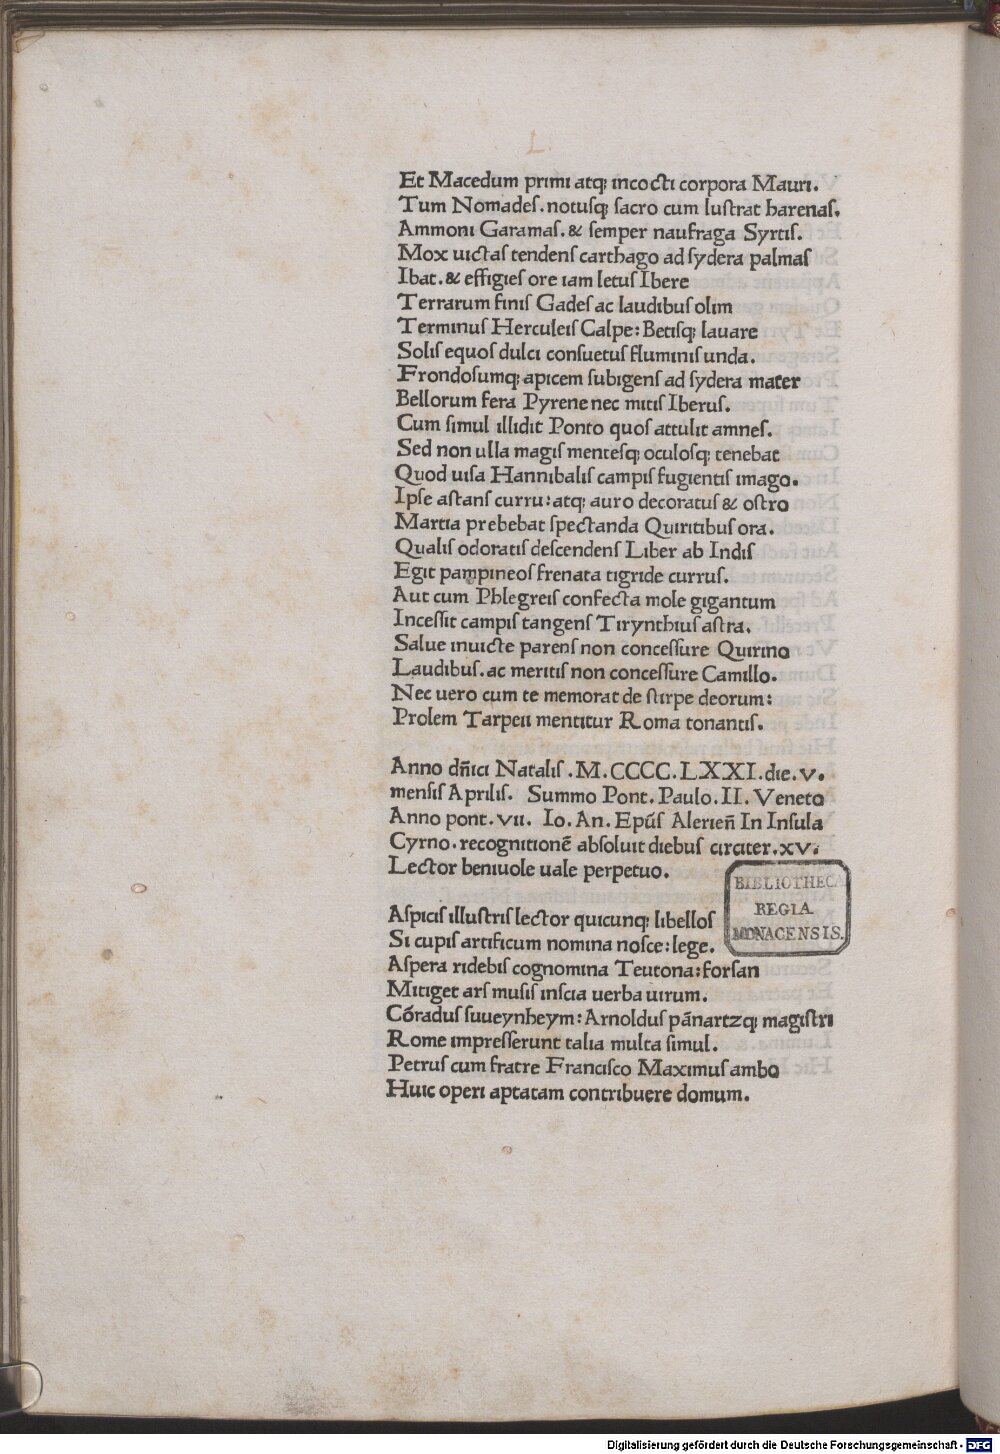 L.
Et Macedum primi atqꝫ incocti corpora Mauri.
Tum Nomadeſ. notuſqꝫ ſacro cum luſtrat harenaſ.
Ammoni Garamaſ. & ſemper naufraga Syrtiſ.
Mox uictaſ tendenſ carthago ad ſydera palmaſ
Ibat. & effigieſ ore iam letuſ Ibere
Terrarum finiſ Gadeſ ac laudibuſ olim
Terminuſ Herculeiſ Calpe: Betiſqꝫ lauare
Soliſ equoſ dulci conſuetuſ fluminiſ unda.
Frondoſumqꝫ apicem ſubigenſ ad ſydera mater
Bellorum fera Pyrene nec mitiſ Iberuſ.
Cum ſimul illidit Ponto quoſ attulit amneſ.
Sed non ulla magiſ menteſqꝫ oculoſqꝫ tenebat
Quod uiſa Hannibaliſ campiſ fugientiſ imago.
Ipſe aſtanſ curru: atqꝫ auro decoratuſ & oſtro
Martia prebebat ſpectanda Quiritibuſ ora.
Qualiſ odoratiſ deſcendenſ Liber ab Indiſ
Egit pampineoſ frenata tigride curruſ.
Aut cum Phlegreiſ confecta mole gigantum
Inceſſit campiſ tangenſ Tirynthiuſ aſtra.
Salue inuicte parenſ non conceſſure Quirino
Laudibuſ. ac meritiſ non conceſſure Camillo.
Nec uero cum te memorat de ſtirpe deorum:
Prolem Tarpeii mentitur Roma tonantiſ.
Anno dn̄ici Nataliſ .M.CCCC.LXXI.die.v.
menſiſ Apriliſ. Summo Pont. Paulo. II. Veneto
Anno pont. vii. Io. An. Epūſ Alerien̄ In Inſula
Cyrno. recognitionē abſoluit diebuſ circiter. xv.
Lector beniuole uale perpetuo.
Aſpiciſ illuſtriſ lector quicunqꝫ libelloſ
Si cupiſ artificum nomina noſce: lege.
Aſpera ridebiſ cognomina Teutona: forſan
Mitiget arſ muſiſ inſcia uerba uirum.
Cōraduſ ſuueynheym: Arnolduſ pānartzqꝫ magiſtri
Rome impreſſerunt talia multa ſimul.
Petruſ cum fratre Franciſco Maximuſ ambo
Huic operi aptatam contribuere domum.
BIBLIOTHECA
REGIA
MONACENSIS.
Digitalisierung gefördert durch die Deutsche Forschungsgemeinschaft - DFG